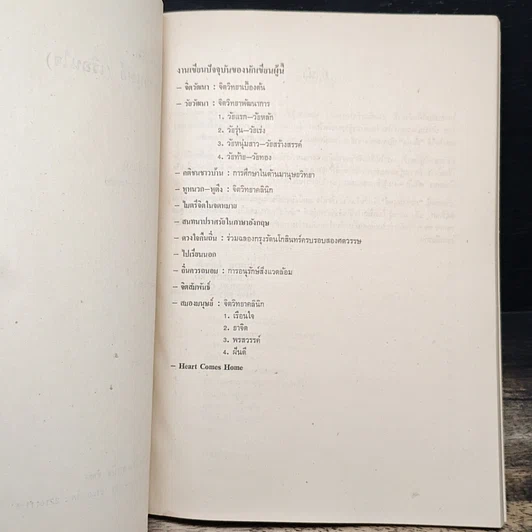 งานเขียนปัจจุบันของนักเขียนผู้นี้
– จิตวัฒนา : จิตวิทยาเบื้องต้น
– วัยวัฒนา : จิตวิทยาพัฒนาการ
1. วัยแรก–วัยหลัก
2. วัยรุ่น–วัยเร่ง
3. วัยหนุ่มสาว–วัยสร้างสรรค์
4. วัยท้าย–วัยทอง
– คติชนชาวบ้าน : การศึกษาในด้านมานุษยวิทยา
– หูหนวก–หูตึง : จิตวิทยาคลินิก
– ไมตรีจิตในจดหมาย
– สนทนาปราศรัยในภาษาอังกฤษ
– ดวงใจกับถิ่น : ร่วมฉลองกรุงรัตนโกสินทร์ครบรอบสองศตวรรษ
– ไปเรียนนอก
– อันควรถนอม : การอนุรักษ์สิ่งแวดล้อม
– จิตสัมพันธ์
– สมองมนุษย์ : จิตวิทยาคลินิก
1. เรือนใจ
2. ธาจิต
3. พรสวรรค์
4. ฝันดี
– Heart Comes Home
(เรือนใจ)